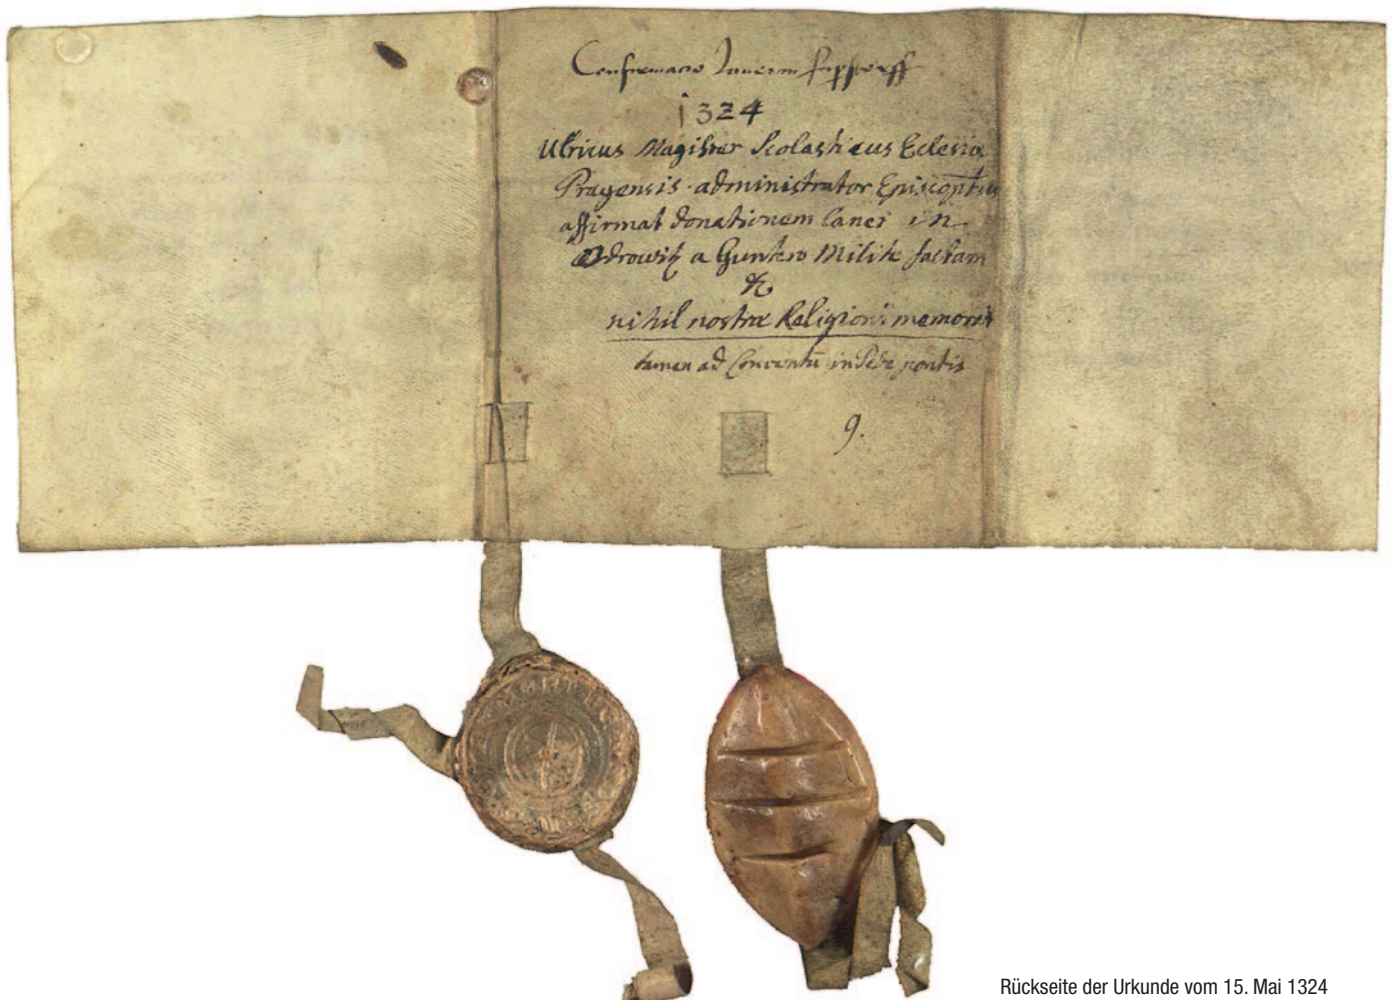 Confirmacio
1324
Ulricus Magister Scolasticus Eclesiæ
Pragensis administrator
affirmat donationem lanei in
Odrowitz a Guntero Milite factam
&
nihil nostræ Religioni memoris
tamen ad Conventū in Pede pontis
9.
Rückseite der Urkunde vom 15. Mai 1324